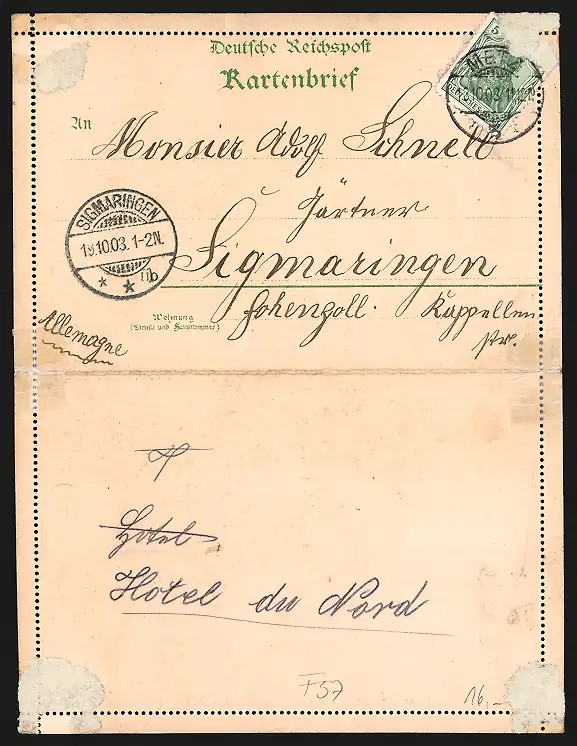 Deutsche Reichspost
Kartenbrief
5
METZ
An
Monsier Adolf Schnell
Gärtner
SIGMARINGEN
19.10.03. 1-2N.
* * b
Sigmaringen
Hohenzoll. Kappellen
str.
Wohnung
(Straße und Hausnummer)
Allemagne
Hotel
Hotel du Nord
F57
16,-